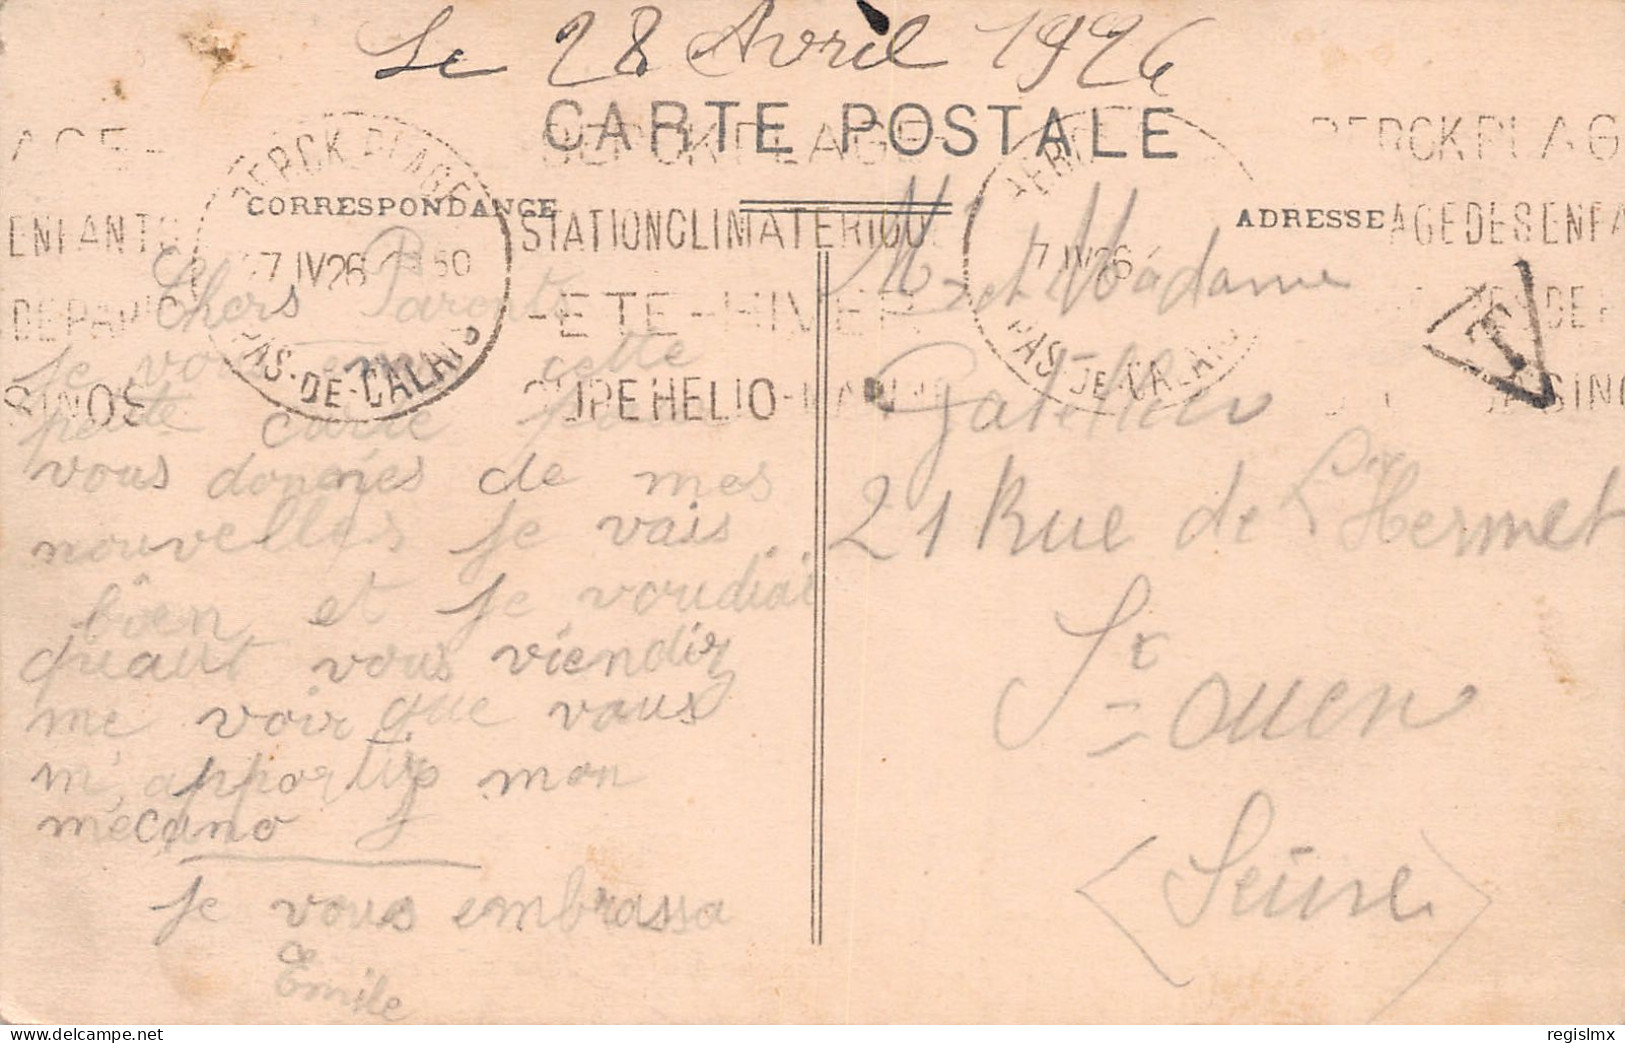 Le 28 Avril 1926
CARTE POSTALE
CORRESPONDANCE
ADRESSE
BERCK PLAGE
27 IV 26
PAS-DE-CALAIS
BERCK PLAGE
STATION CLIMATERIQUE
ETE-HIVER
CURE HELIO-MARINE
7 IV 26
PAS-DE-CALAIS
BERCK PLAGE
AGE DES ENFA
ENFANTS
DE PARIS
SINOS
T
Chers Parents
je vous envoie cette
petite carte pour
vous donnés de mes
nouvelles je vais
bien et je voudiai
quant vous viendiz
me voir que vous
m'apportiz mon
mécano
je vous embrassa
Emile
Mr et Madame
21 Rue de L'Hermet
St Ouen
(Seine)
regislmx
delcampe.net